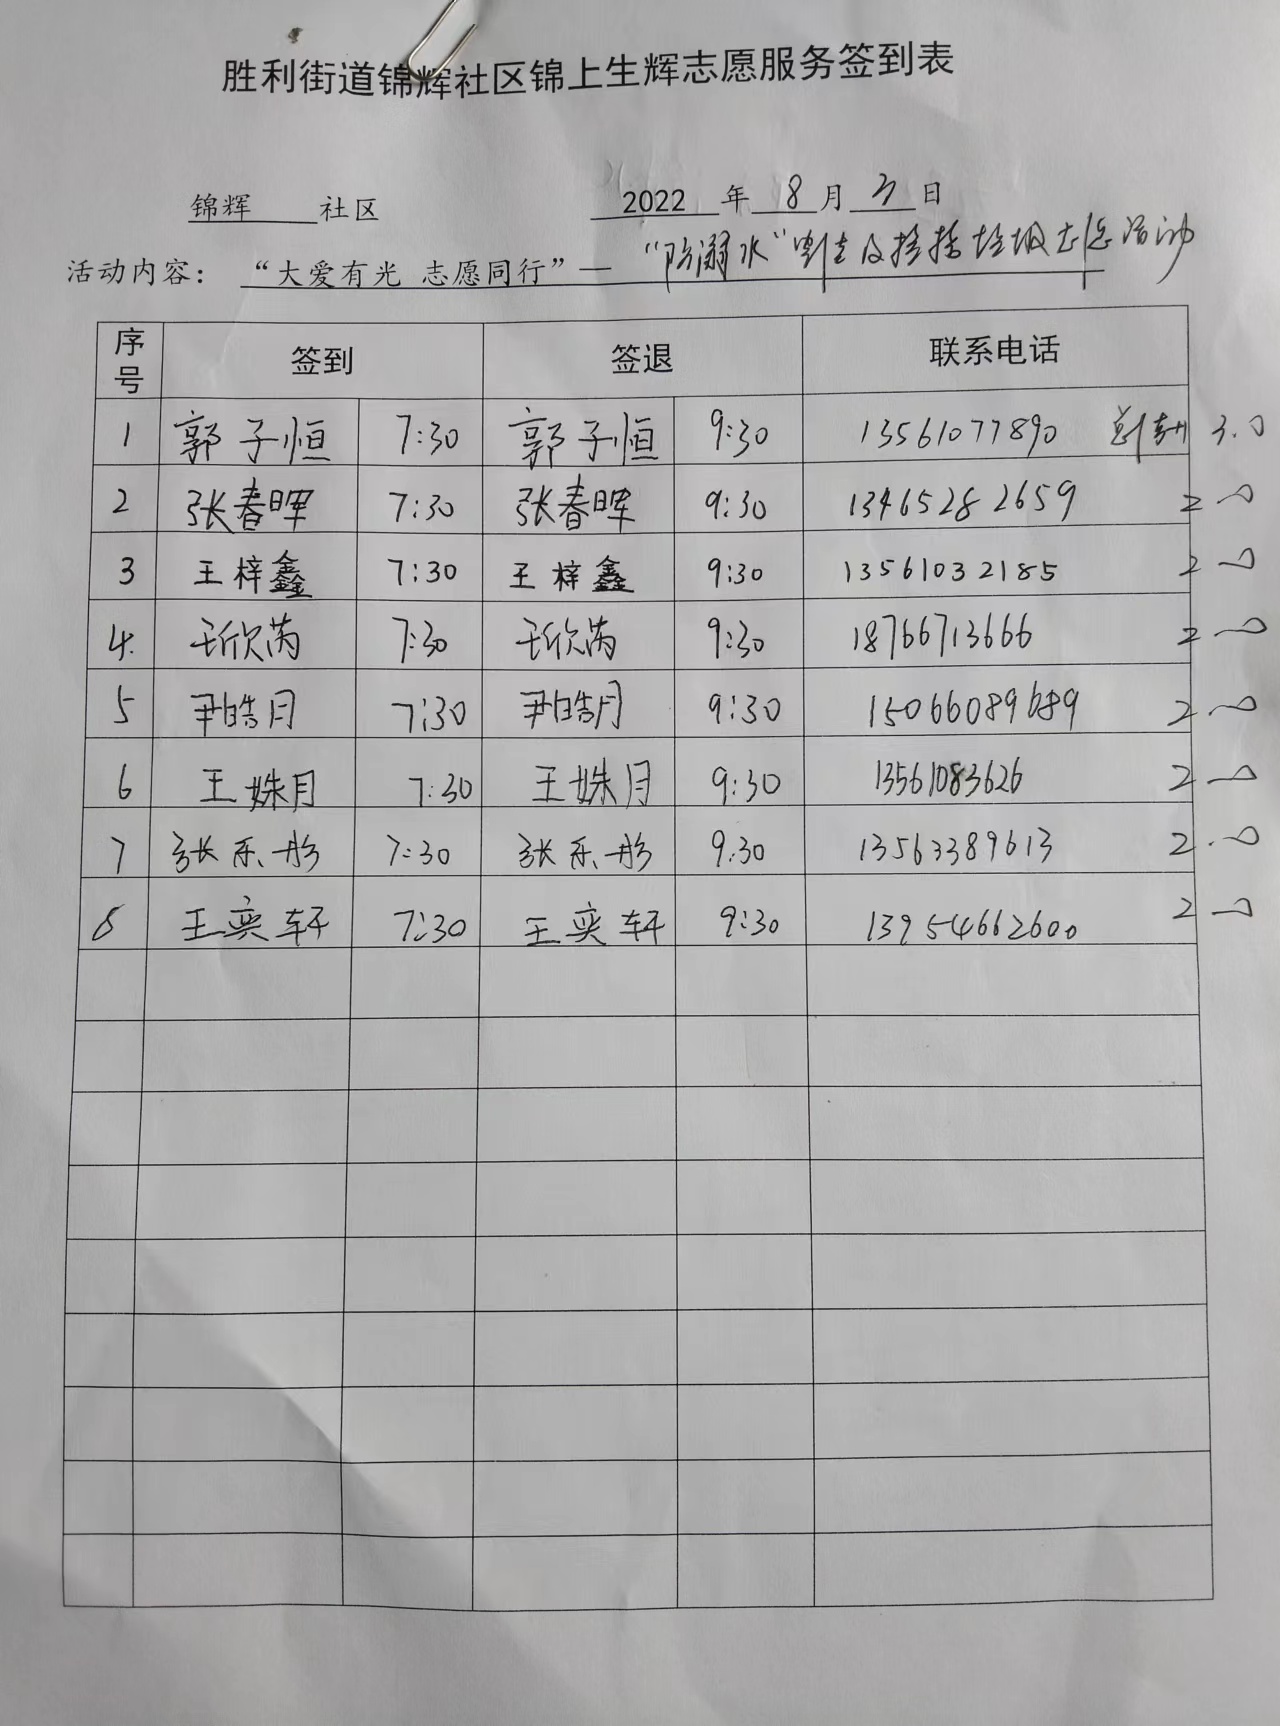 胜利街道锦辉社区锦上生辉志愿服务签到表
锦辉 社区 2022 年 8 月 3 日
活动内容： “大爱有光 志愿同行”— “防溺水”宣传及捡拾垃圾志愿活动
序号 签到 签退 联系电话
1 郭子恒 7:30 郭子恒 9:30 13561077890 3.0
2 张春晖 7:30 张春晖 9:30 13465282659 2.0
3 王梓鑫 7:30 王梓鑫 9:30 13561032185 2.0
4. 王欣芮 7:30 王欣芮 9:30 18766713666 2.0
5 尹皓月 7:30 尹皓月 9:30 15066089689 2.0
6 王姝月 7:30 王姝月 9:30 13561083626 2.0
7 张乐彤 7:30 张乐彤 9.30 13563389613 2.0
8 王奕轩 7:30 王奕轩 9:30 13954662600 2.0